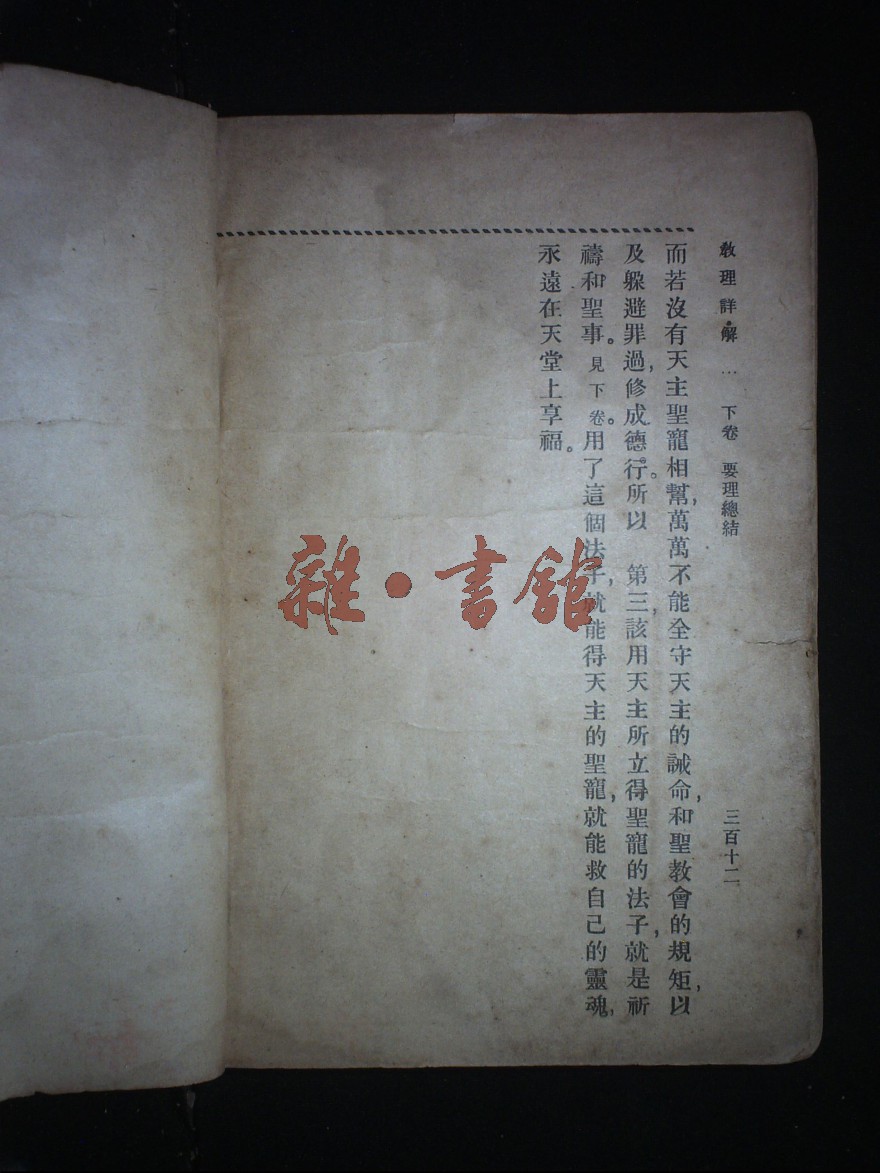 教理詳解 … 下卷 要理總結 三百十二
而若沒有天主聖寵相幫，萬萬不能全守天主的誡命，和聖教會的規矩，以
及躲避罪過，修成德行。所以 第三，該用天主所立得聖寵的法子，就是祈
禱和聖事。見下卷。用了這個法子，就能得天主的聖寵，就能救自己的靈魂，
永遠在天堂上享福。
雜·書館